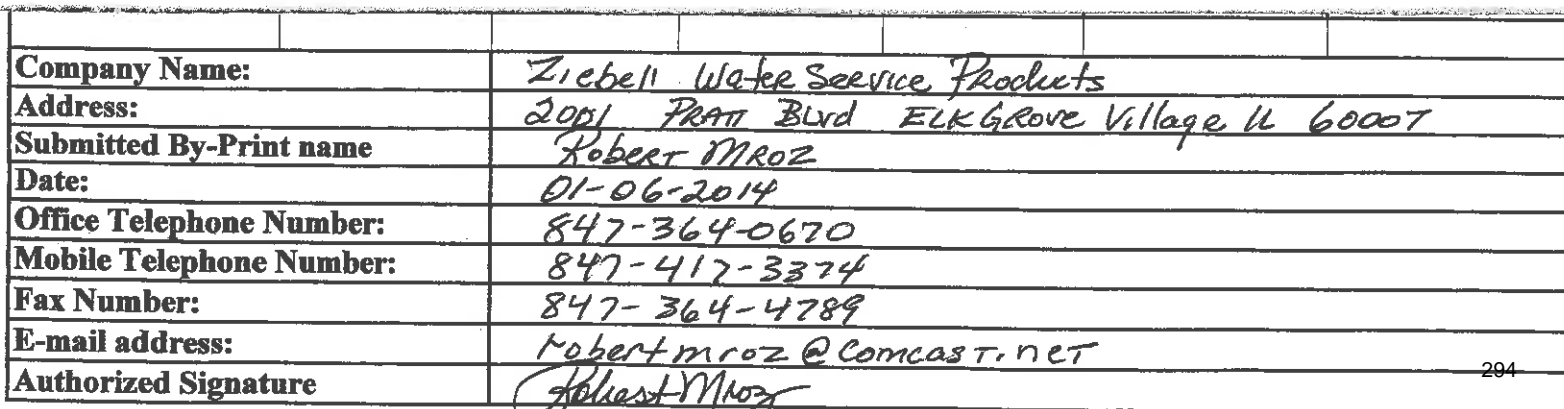 Company Name: Ziebell Water Service Products
Address: 2001 PRATT Blvd ELK GROVE Village IL 60007
Submitted By-Print name Robert MROZ
Date: 01-06-2014
Office Telephone Number: 847-364-0670
Mobile Telephone Number: 847-417-3374
Fax Number: 847-364-4789
E-mail address: robertmroz@comcast.net
Authorized Signature Robert Mroz
294